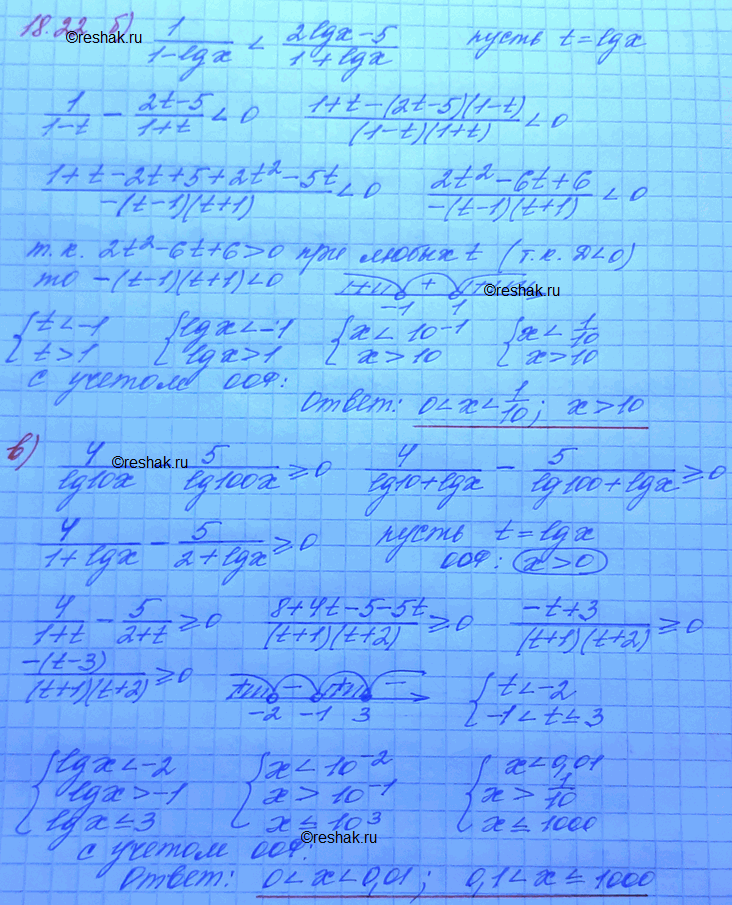 18.22 б) 1/(1-lgx) < (2lgx-5)/(1+lgx) пусть t=lgx
©reshak.ru
1/(1-t) - (2t-5)/(1+t) < 0 (1+t-(2t-5)(1-t))/((1-t)(1+t)) < 0
(1+t-2t+5+2t²-5t)/(-(t-1)(t+1)) < 0 (2t²-6t+6)/(-(t-1)(t+1)) < 0
т.к. 2t²-6t+6>0 при любых t (т.к. D<0)
то -(t-1)(t+1)<0 + -1 1 ©reshak.ru
{t<-1 {lgx<-1 {x<10⁻¹ {x<1/10
t>1 lgx>1 x>10 x>10
с учетом ООФ:
Ответ: 0<x<1/10; x>10
в) 4/lg10x - 5/lg100x ≥0 4/(lg10+lgx) - 5/(lg100+lgx) ≥0
©reshak.ru
4/(1+lgx) - 5/(2+lgx) ≥0 пусть t=lgx
ООФ: x>0
4/(1+t) - 5/(2+t) ≥0 (8+4t-5-5t)/((t+1)(t+2)) ≥0 (-t+3)/((t+1)(t+2)) ≥0
-(t-3)/((t+1)(t+2)) ≥0 + - + - -2 -1 3 {t<-2
-1<t≤3
{lgx<-2 {x<10⁻² {x<0,01
lgx>-1 x>10⁻¹ x>1/10
lgx≤3 x≤10³ x≤1000
©reshak.ru
с учетом ООФ:
Ответ: 0<x<0,01; 0,1<x≤1000